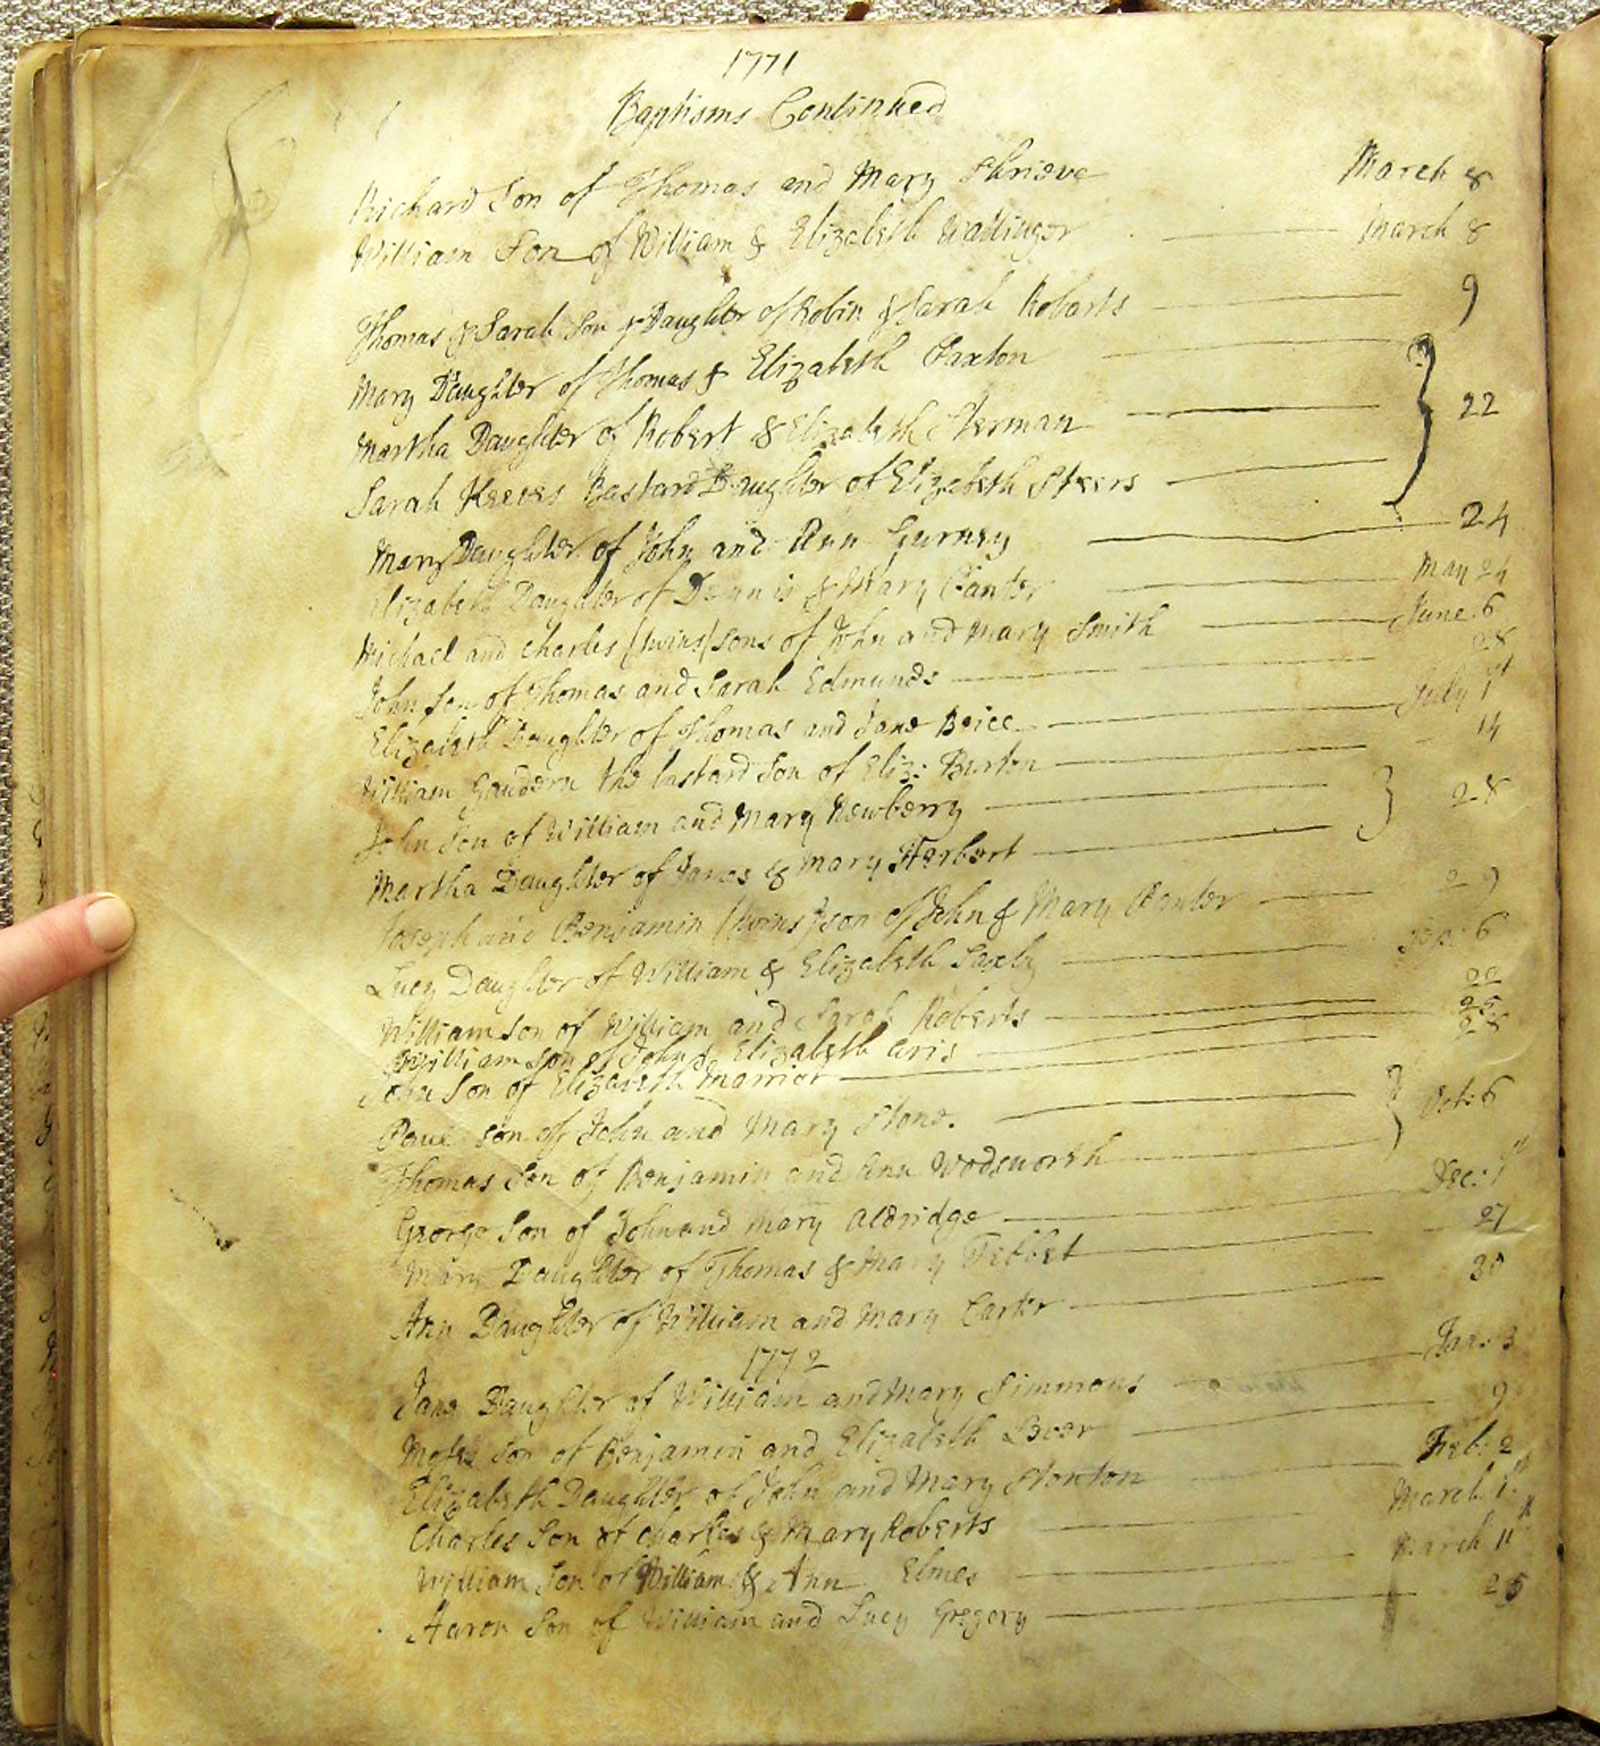 1771
Baptisms Continued
Richard Son of Thomas and Mary Shrieve March 8
William Son of William & Elizabeth Wallinger March 8
Thomas & Sarah Son & Daughter of Robin & Sarah Robarts 9
Mary Daughter of Thomas & Elizabeth Saxton
Martha Daughter of Robert & Elizabeth Herman 22
Sarah Keeves Bastard Daughter of Elizabeth Steers
Mary Daughter of John and Ann Gurney 24
Elizabeth Daughter of Dennis & Mary Panter May 24
Michael and Charles (twins) sons of John and Mary Smith June. 6
John son of Thomas and Sarah Edmunds 28
Elizabeth Daughter of Thomas and Jane Brice July 1st
William Gaudern the bastard Son of Eliz: Burton 14
John Son of William and Mary Newberry 28
Martha Daughter of James & Mary Herbert
Joseph and Benjamin (twins) son of John & Mary Panter 29
Lucy Daughter of William & Elizabeth Saxby Sep: 6
William son of William and Sarah Roberts 22
William son of John & Elizabeth Aris 25
John Son of Elizabeth Marriot 28
Paul son of John and Mary Stone. Oct: 6
Thomas Son of Benjamin and Ann Wodsworth
George Son of John and Mary Aldridge Dec: 1st
Mary Daughter of Thomas & Mary Tebbet 27
Ann Daughter of William and Mary Carter 30
1772
Jane Daughter of William and Mary Simmons Jan: 3
Moses Son of Benjamin and Elizabeth 9
Elizabeth Daughter of John and Mary Stonton Feb: 2
Charles Son of Charles & Mary Roberts March 1st
William Son of William & Ann Elmes March 11th
Aaron Son of William and Lucy Gregory 25